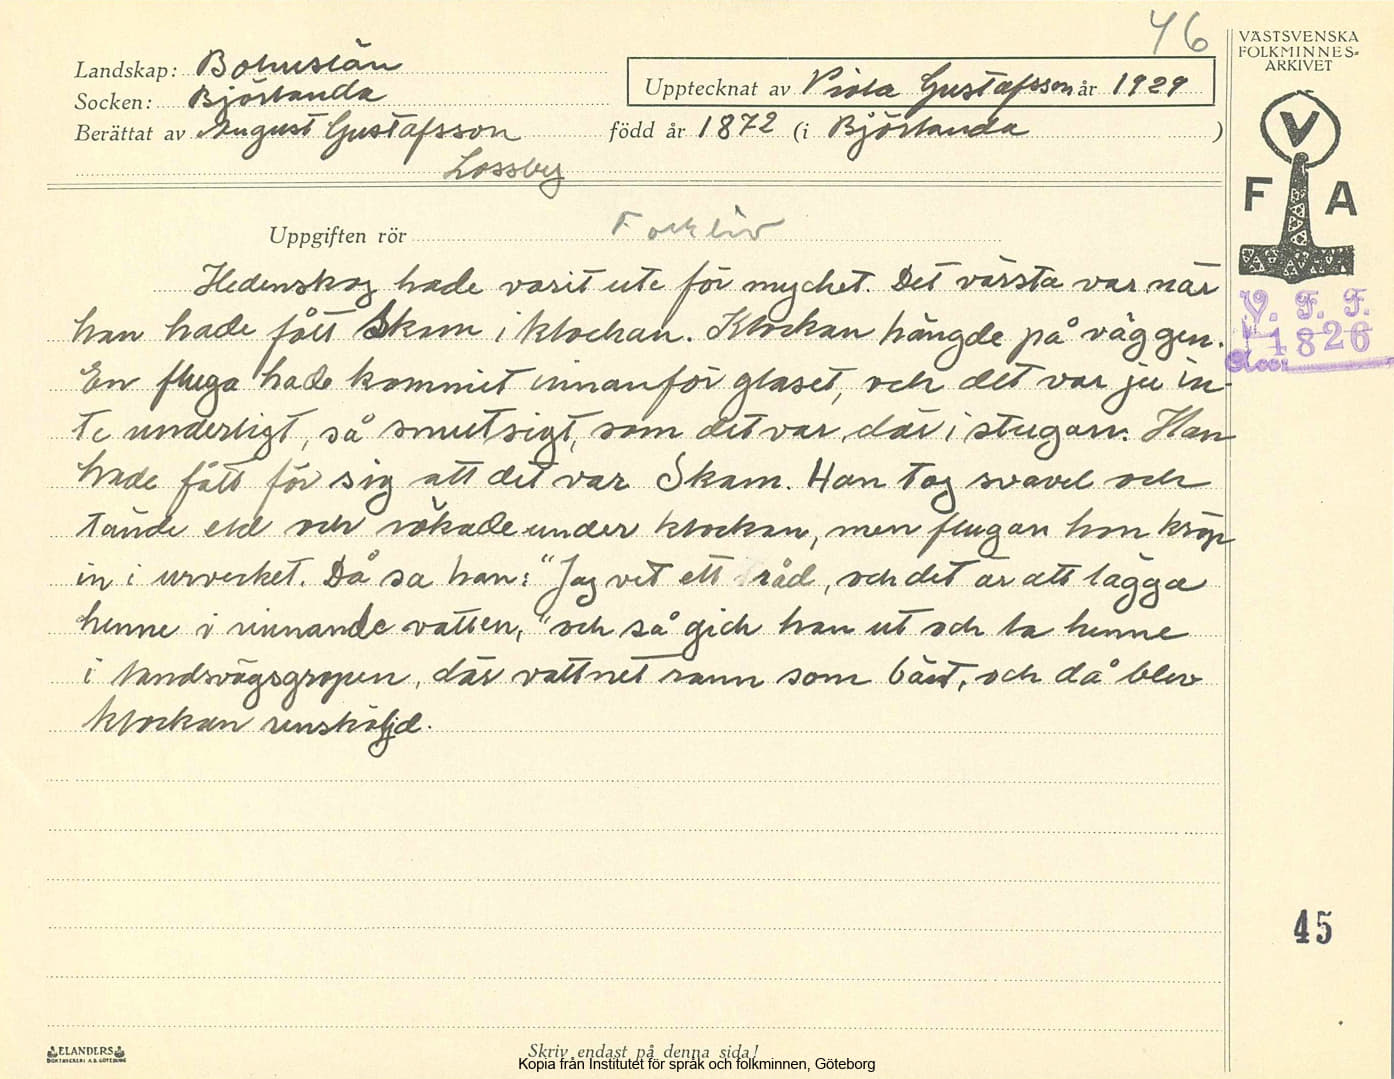 46
VÄSTSVENSKA
FOLKMINNES-
ARKIVET
Landskap: Bohuslän
Socken: Björlanda
Upptecknat av Viola Gustafsson år 1929
Berättat av August Gustafsson född år 1872 (i Björlanda )
Lossby
V
F A
Uppgiften rör Folkliv
V. F. F.
1826
Hedenskog hade varit ute för mychet. Det värsta var när
han hade fått Skam i klockan. Klockan hängde på väggen.
En fluga hade kommit innanför glaset, och det var ju in-
te underligt, så smutsigt, som det var där i stugan. Han
hade fått för sig att det var Skam. Han tog svavel och
tände eld och rökade under klockan, men flugan hon kröp
in i urverket. Då sa han: "Jag vet ett råd, och det är att lägga
henne i rinnande vatten," och så gick han ut och la henne
i landsvägsgropen, där vattnet rann som bäst, och då blev
klockan renskölјd.
45
ELANDERS
BOKTRYCKERI A.B. GÖTEBORG
Skriv endast på denna sida!
Kopia från Institutet för språk och folkminnen, Göteborg